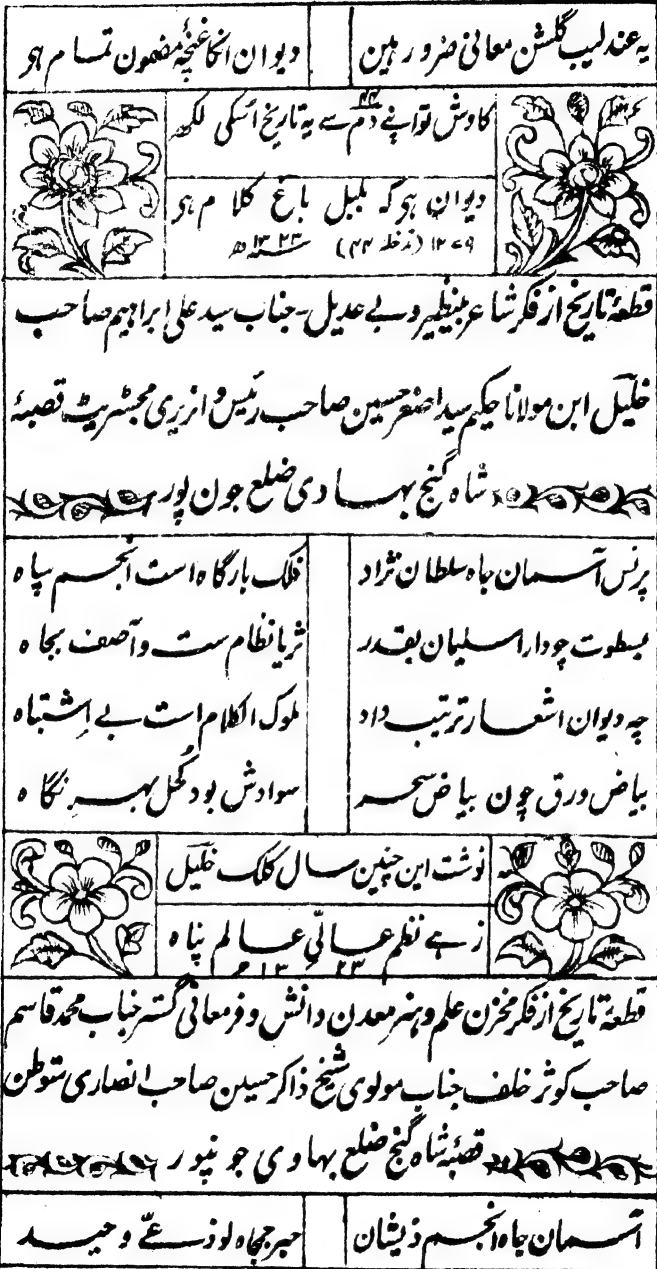 یہ عندلیب گلشن معانی ضرور ہین دیوان انکا غنچۂ مضمون تمام ہو
کاوش تو اپنے دم سے یہ تاریخ اسکی لکھ
۴۴
دیوان ہو کہ بلبل باغ کلام ہو
۱۲۷۹ (تدخلہ ۴۴) سنہ ۱۳۲۳ھ
قطعۂ تاریخ از فکر شاعر بینظیر و بے عدیل۔ جناب سید علی ابراہیم صاحب
خلیل ابن مولانا حکیم سید اصغر حسین صاحب رئیس و انریری مجسٹریٹ قصبۂ
شاہ گنج بہادی ضلع جون پور
پرنس آسمان جاہ سلطان نژاد فلک بارگاہ است انجم سپاہ
بسطوت چو دارا سلیمان بقدر ثریا نظام ست و آصف بجاہ
چہ دیوان اشعار ترتیب داد ملوک الکلام است بے اشتباہ
بیاض ورق چون بیاض سحر سوادش بود کحل بہر نگاہ
نوشت این چنین سال کلک خلیل
زہے نظم عالی عالم پناہ
۱۳۲۳
قطعۂ تاریخ از فکر مخزن علم و ہنر معدن دانش و فر معانی گستر جناب محمد قاسم
صاحب کوثر خلف جناب مولوی شیخ ذاکر حسین صاحب انصاری متوطن
قصبۂ شاہ گنج ضلع بہاوی جونپور
آسمان جاہ انجم ذیشان حبر جمجاہ لوذعی وحید